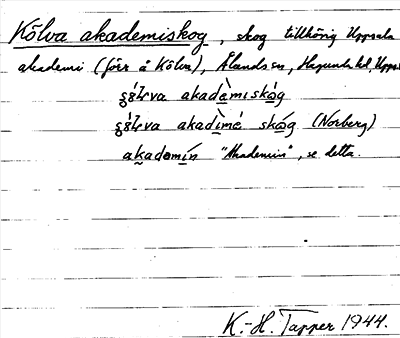 Kölva akademiskog, skog tillhörig Uppsala
akademi (förr å Kölva), Ålands sn, Hagunda hd, Uppsala
akadèmiskåg
akadìmé skåg (Norberg)
akademín "Akademin", se detta.
K.-H. Tapper 1944.